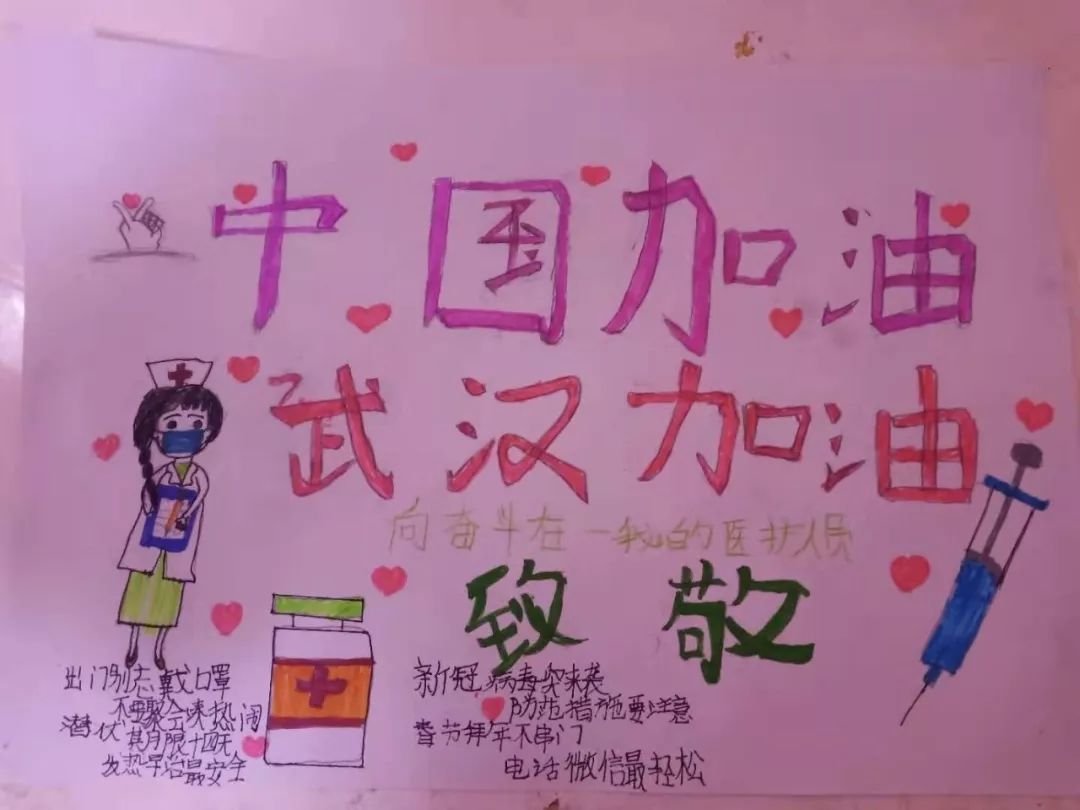 中国加油
武汉加油
向奋斗在一线的医护人员
致敬
出门别忘戴口罩
不要聚会凑热闹
潜伏
期限十四天
发热早治最安全
新冠病毒突来袭
防范措施要注意
春节拜年不串门
电话微信最轻松